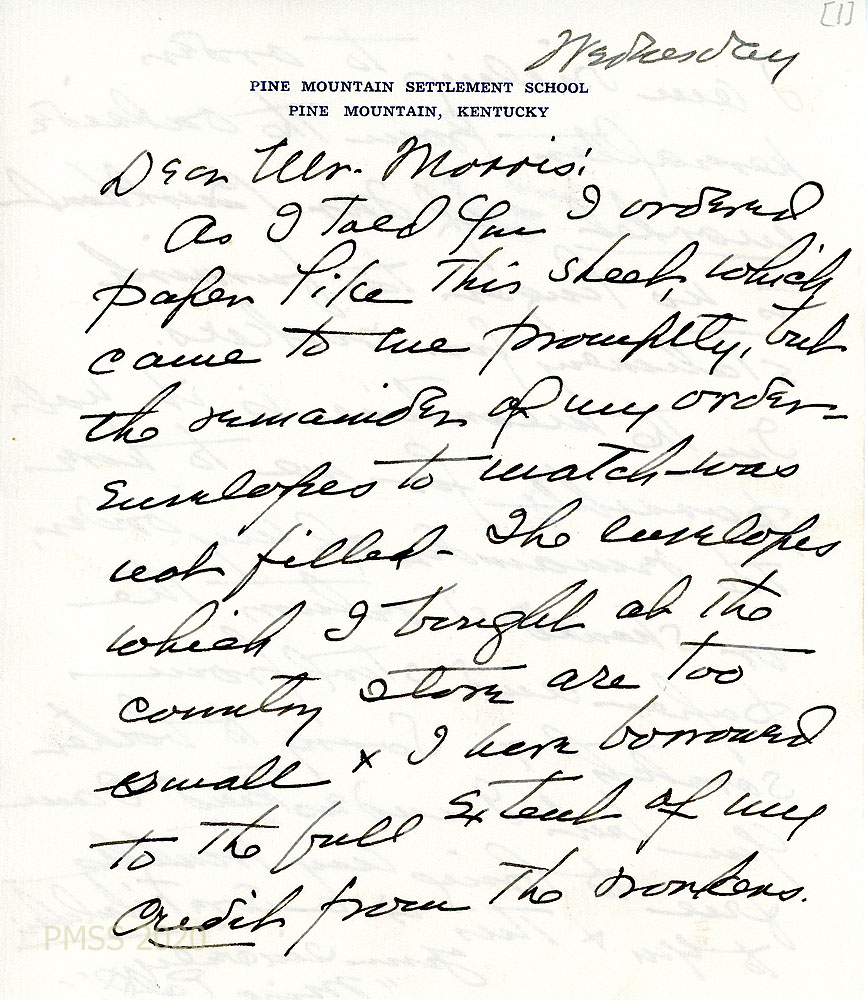 [1]
Wednesday
PINE MOUNTAIN SETTLEMENT SCHOOL
PINE MOUNTAIN, KENTUCKY
Dear Mr. Morris:
As I told you I ordered
paper like this sheet, which
came to me promptly, but
the remainder of my order-
envelopes to match-was
not filled- The envelopes
which I bought at the
country store are too
small & I have borrowed
to the full extent of my
credit from the workers.
PMSS 2020